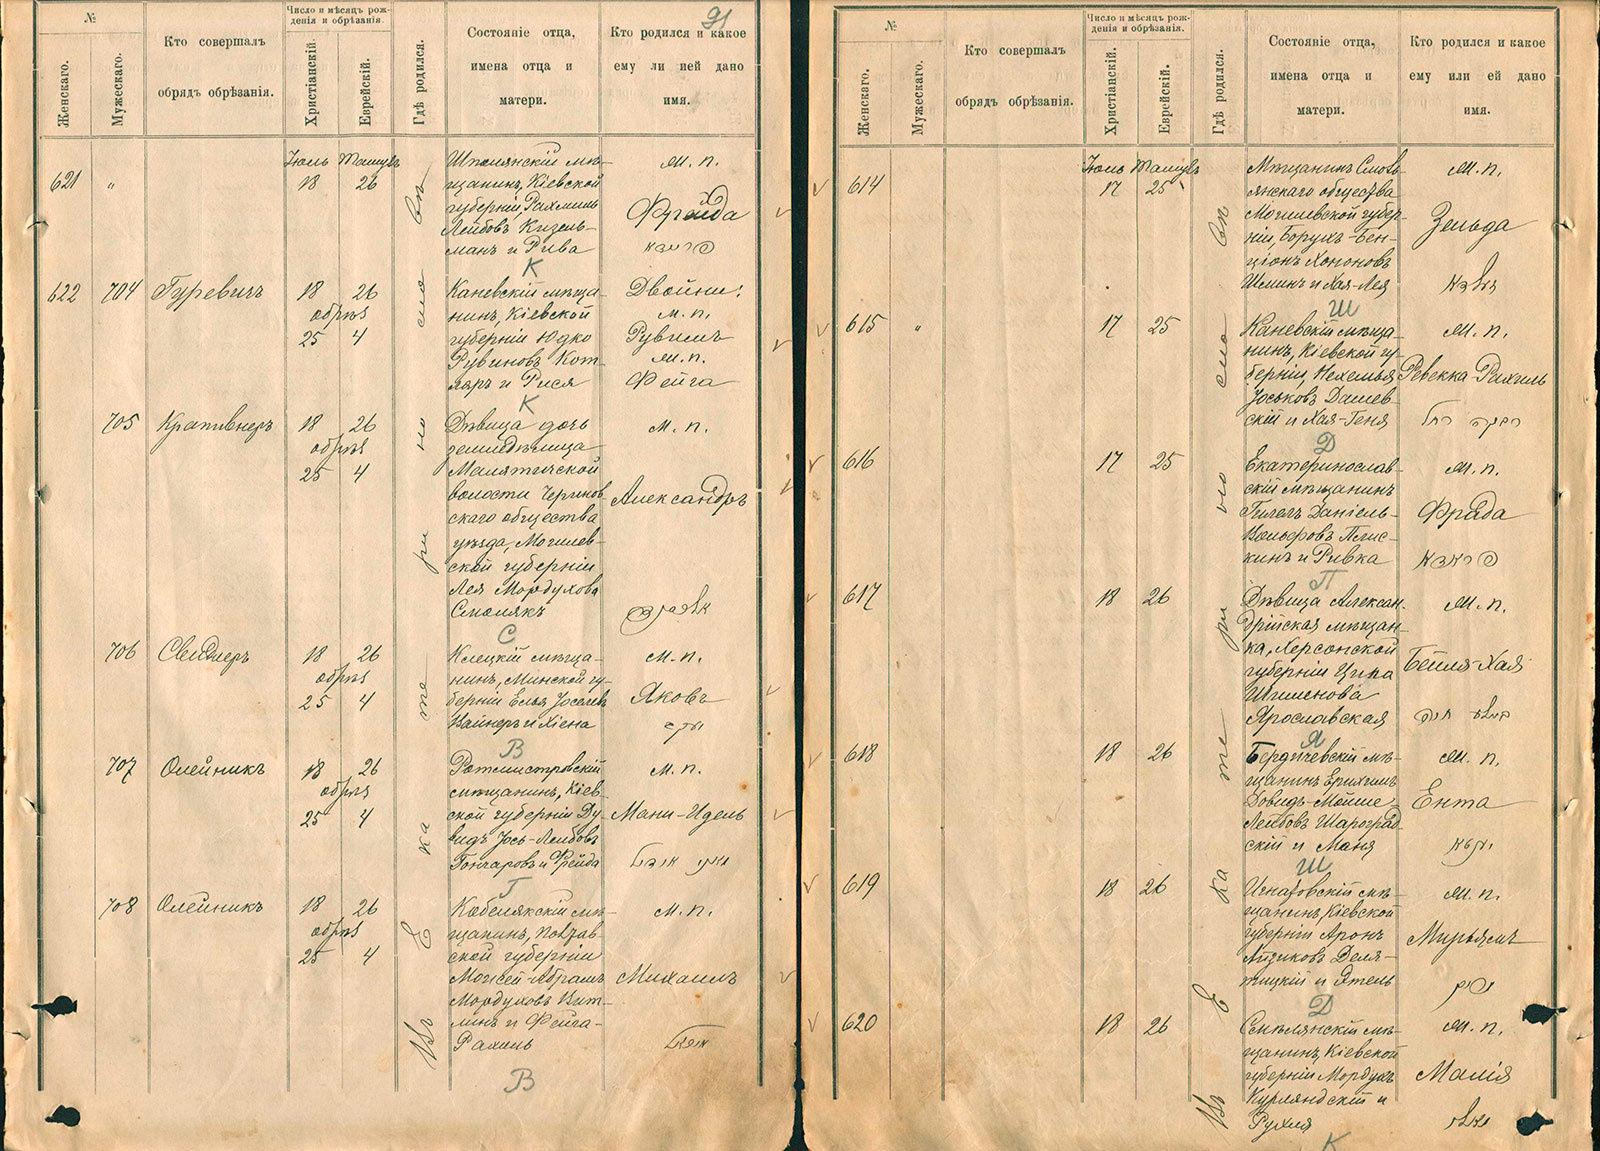 91
№
Женскаго.
Мужескаго.
Кто совершалъ
обрядъ обрѣзанія.
Число и мѣсяцъ рож-
денія и обрѣзанія.
Христіанскій.
Еврейскій.
Гдѣ родился.
Состояніе отца,
имена отца и
матери.
Кто родился и какое
ему ли ией дано
имя.
Въ Екатеринославѣ
Іюль Тамузъ
621 " 18 26
Шполянскій мѣ-
щанинъ, Кіевской
губерніи, Рахмиль
Лейбовъ Кизель-
манъ и Рива
К
м. п.
Фрайда
פריידא
622 704 Гуревичъ 18 26
обрѣз
25 4
Каневскій мѣща-
нинъ, Кіевской
губерніи Юдко
Рувиновъ Кот-
ляръ и Рися
К
Двойни:
м. п.
Рувимъ
м. п.
Фейга
705 Крапивнеръ 18 26
обрѣз
25 4
Дѣвица дочь
земледѣльца
Малятичской
волости Чериков-
скаго общества
уѣзда, Могилев-
ской губерніи
Лея Мордухова
Смолякъ
С
м. п.
Александръ
706 Свейднеръ 18 26
обрѣз
25 4
Клецкій мѣща-
нинъ, Минской гу-
берніи Елья Іоселевъ
Вайнеръ и Хіена
В
м. п.
Яковъ
יעקב
707 Олейникъ 18 26
обрѣз
25 4
Ротмистровскій
мѣщанинъ, Кіев-
ской губерніи Ду-
видъ Іось-Лейбовъ
Гончаровъ и Фрейда
Г
м. п.
Мани-Идель
708 Олейникъ 18 26
обрѣз
25 4
Кобелякскій мѣ-
щанинъ, Полтав-
ской губерніи
Мойсей-Абрамъ
Мордуховъ Вит-
линъ и Фейга-
Рахиль
В
м. п.
Михаилъ
№
Женскаго.
Мужескаго.
Кто совершалъ
обрядъ обрѣзанія.
Число и мѣсяцъ рож-
денія и обрѣзанія.
Христіанскій.
Еврейскій.
Гдѣ родился.
Состояніе отца,
имена отца и
матери.
Кто родился и какое
ему или ей дано
имя.
Въ Екатеринославѣ
Іюль Тамузъ
614 17 25
Мѣщанинъ
янскаго общества
Могилевской губер-
ніи, Борухъ-Бен-
ціонъ Хононовъ
Шминъ и Хая-Лея
Ш
м. п.
Зельда
זעלדא
615 " 17 25
Каневскій мѣща-
нинъ, Кіевской гу-
берніи, Нехемья
Іоськовъ Дашев-
скій и Хая-Геня
Д
м. п.
Ревекка-Рахиль
רבקה רחל
616 17 25
Екатеринослав-
скій мѣщанинъ
Гилелъ Даніель-
Вольфовъ Плис-
кинъ и Ривка
П
м. п.
Фрада
פראדא
617 18 26
Дѣвица Алексан-
дрійская мѣщан-
ка, Херсонской
губерніи Ципа
Шлиомова
Ярославская
Я
м. п.
Бейля-Хая
ביילא חיה
618 18 26
Бердичевскій мѣ-
щанинъ Ерихимъ
Довидъ-Мойше-
Лейбовъ Шарогрод-
скій и Маня
Ш
м. п.
Ента
יענטא
619 18 26
Игнатовскій мѣ-
щанинъ, Кіевской
губерніи Аронъ
Айзиковъ Деля-
тицкій и Этель
Д
м. п.
Мирьямъ
מרים
620 18 26
Смѣлянскій мѣ-
щанинъ, Кіевской
губерніи Мордухъ
Курляндскій и
Рухля
К
м. п.
Малія